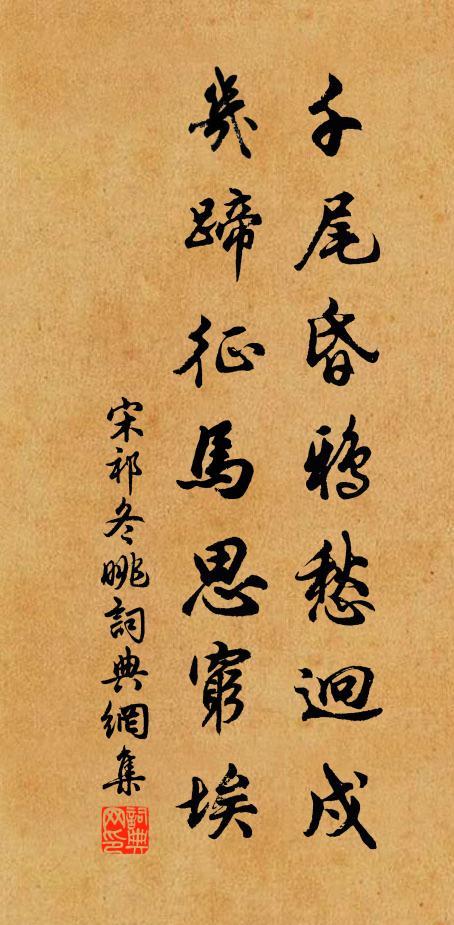 千尾昏鴉愁迥戍
幾蹄征馬思窮埃
宋祁冬眺詞典網集
詞典网印